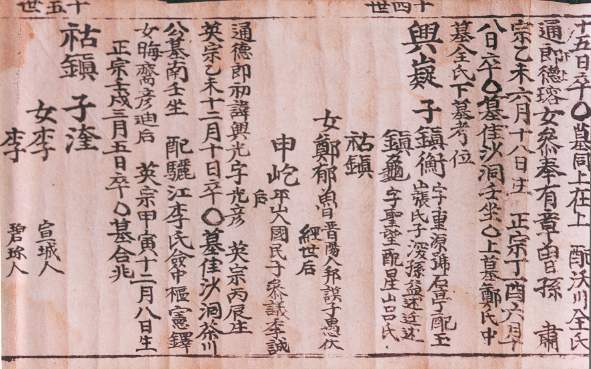 十四世
十五日卒〇墓同上在上 配沃川全氏
通郎德瑢女參奉有章曾孫 肅
宗乙未六月十八日生 正宗丁酉六月十
八日卒〇墓佳沙洞壬坐〇上墓鄭氏中
墓全氏下墓考位
興嶷 子鎭衡 字重源號石亭配玉
山張氏子浚孫益述近述
鎭龜 字聖瑩配星山呂氏
祜鎭
女鄭郁魯 晋陽人邦 子 伏
經世后
申屹 平山人國民子參議季誠
后
通德郎初諱興光字光彦 英宗丙辰生
英宗乙未十二月十日卒〇墓佳沙洞茶川
公墓南壬坐 配驪江李氏僉中樞憲鐸
女晦齋彦迪后 英宗甲寅十二月八日生
正宗壬戌三月五日卒〇墓合兆
十五世
祜鎭 子溎
女李 宣城人
李 碧珍人